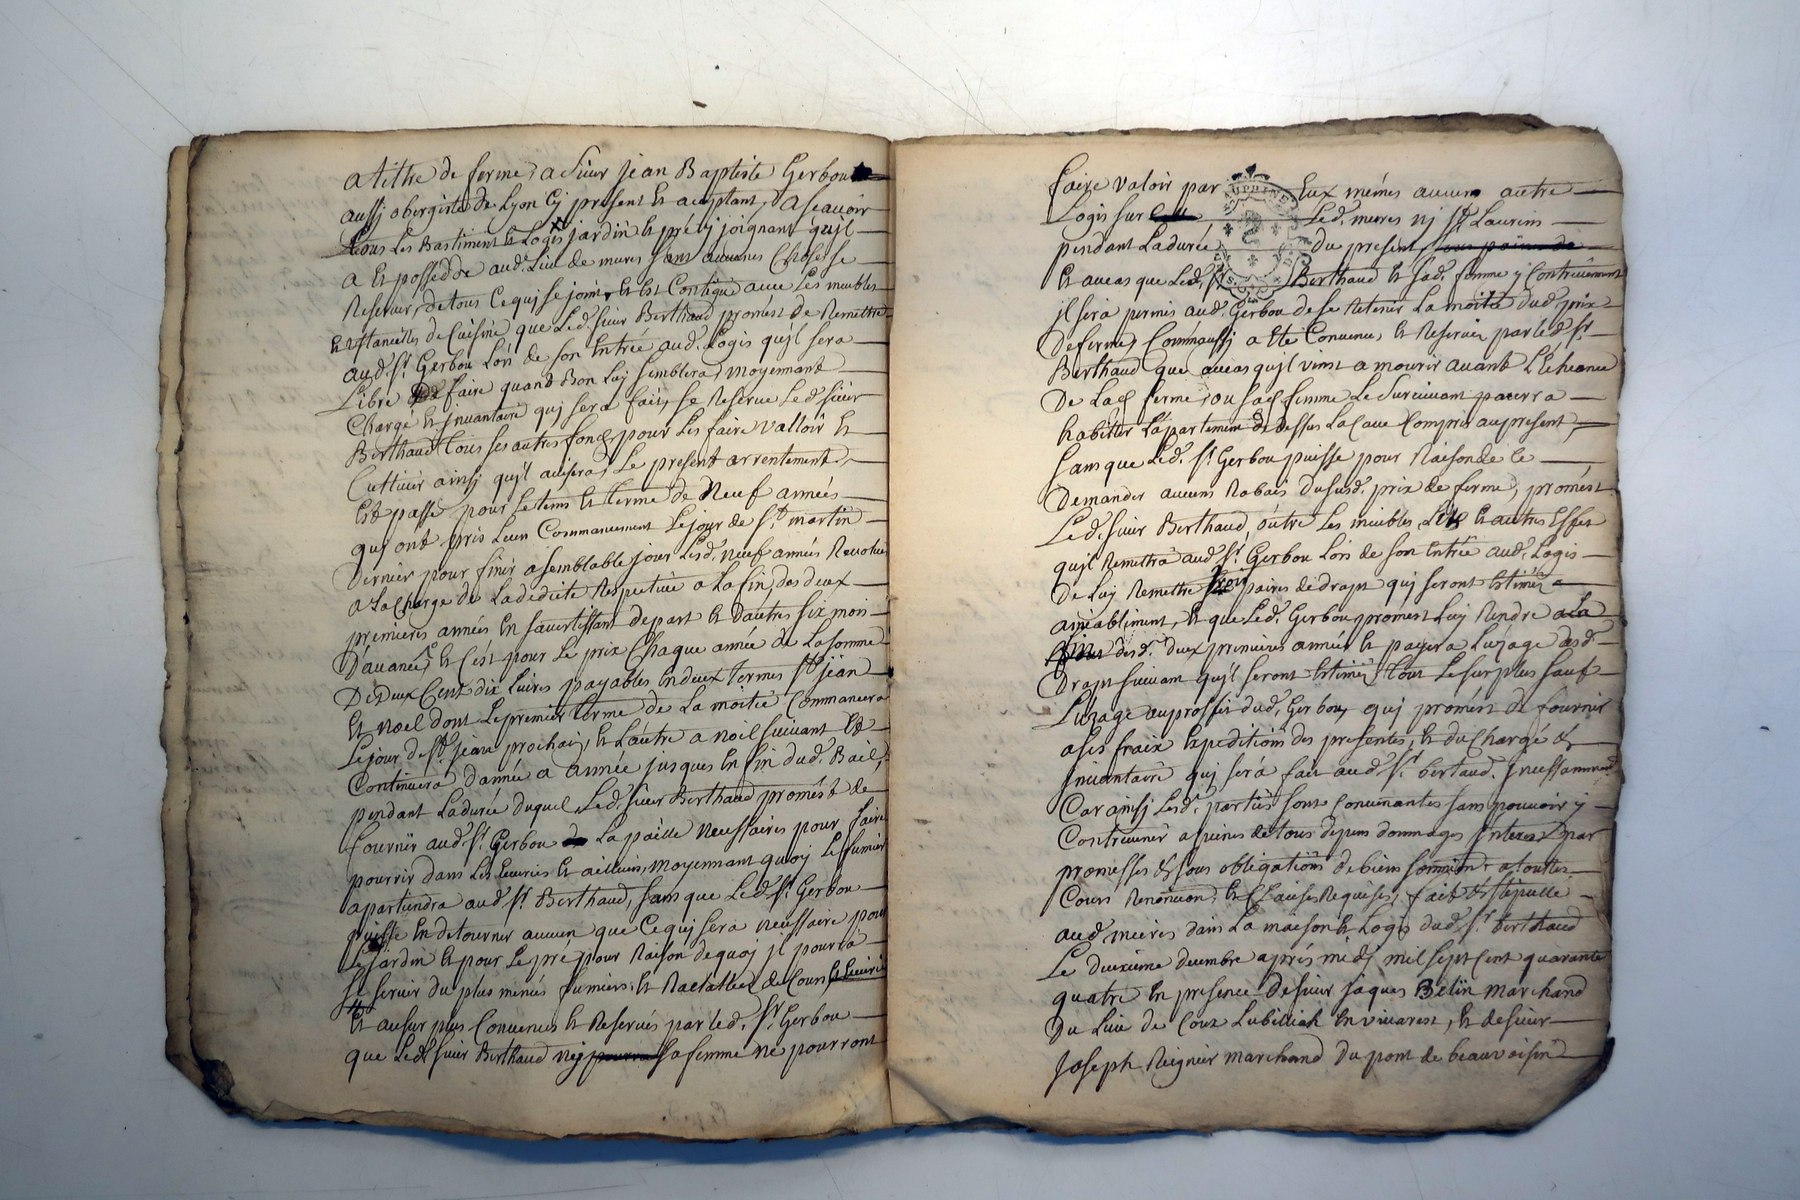 a tithre de ferme, a sieur jean Baptiste Gerbou
aussj obergiste de Lyon Cy present et aceptant, a scavoir
tous Les Bastiment et Logis jardin et pré y joignant qu'jl
a et possedde aud. Lieu de mures sans aucunes Choses se
Reserver, de tous Ce quj se joint et est Contigue avec Les meubles
et Ustancilles de Cuisine que Led. sieur Berthaud promest de Remettre
aud. sr. Gerbou Lors de son entrée aud. Logis qu'jl sera
Libre de faire quand Bon Luj semblera, moyennant
Charge et jnvantaire quj sera fait, se Reserve Led. sieur
Berthaud tous ses autres fonds pour Les faire valloir et
Cultiver ainsj qu'jl avisera, Le present arrentement
est passé pour Le tems et terme de Neuf années
quj ont pris Leur Commancement Le jour de st. martin
Dernier pour finir a semblable jour Lesd. neuf années Revolues
a La charge de La dedicte Respective a La fin des deux
premieres années en s'avertissant de part et d'autres six mois
D'avance, et C'est pour Le prix Chaque année de La somme
De Deux Cent dix Livres payables en deux termes st. jean
et Noel dont Le premier terme de La moitié Commancera
Le jour de st. jean prochain, et L'autre a noel suivant et
Continuera d'année a année jusques en fin dud. Bail,
pendant La durée duquel Led. sieur Berthaud promest de
fournir aud. sr. Gerbou La paille necessaires pour faire
pourrir dans Les Ecuries et ailleurs, moyennant quoj Le fumier
apartiendra aud. sr. Berthaud, sans que Led. sr. Gerbou
puisse en detourner aucun que Ce quj sera necessaire pour
Le jardin et pour Le pré pour Raison de quoj jl pourra
se servir du plus menus fumiers, et de Cour et Ecurie
et au sur plus Convenus et Reservés par led. sr. Gerbou
que Led. sieur Berthaud nj pourra sa femme ne pourront
faire valoir par Eux mémes aucun autre
Logis sur Led. mures nj st. Laurens
pendant La durée du present
et au cas que Led. sr. Berthaud et sad. femme y Contreviennent
jl sera permis aud. Gerbou de se Retenir La moitié dud. prix
De ferme, Comm'aussj a eté Convenu, et Reservés par led. sr.
Berthaud que au cas qu'jl vint a mourir avant L'Echeance
De Lad. ferme, ou sad. femme Le survivant pourra
habiter L'apartement de dessus La Cave Compris au present
sans que Led. sr. Gerbou puisse pour Raison de ce
Demander aucuns Rabais du susd. prix de ferme, promest
Led. sieur Berthaud outre Les meubles, Lits et autres Effets
qu'jl Remettra aud. sr. Gerbou Lors de son Entrée aud. Logis
De Luy Remettre trois paires de drapt quj seront Estimés
amiablement, et que Led. Gerbou promest Luy Rendre a La
fin desd. deux premieres années et payera L'uzage desd.
Drapt suivant qu'jl seront Estimés, tout Le surplus sauf
L'uzage au proffit dud. Gerbou, quj promest de fournir
a ses fraix Expeditions des presentes, et du Chargé et
jnvantaire quj sera fait aud. sr. bertaud. jncessamment
Car ainsj Lesd. parties sont Convenantes sans pouvoir y
Contrevenir a peines de tous depens dommages jnterest par
promesses et sous obligations de biens a touttes
Cours et Clauses Requises, fait et stipullé
aud. mures dans La maison et Logis dud. sr. Berthaud
Le deuxieme decembre aprés midj mil sept Cent quarante
quatre en presence de sieur jaques Belin marchand
Du Lieu de en vivarest, et de sieur
Joseph Reignier marchand du pont de beauvoisin